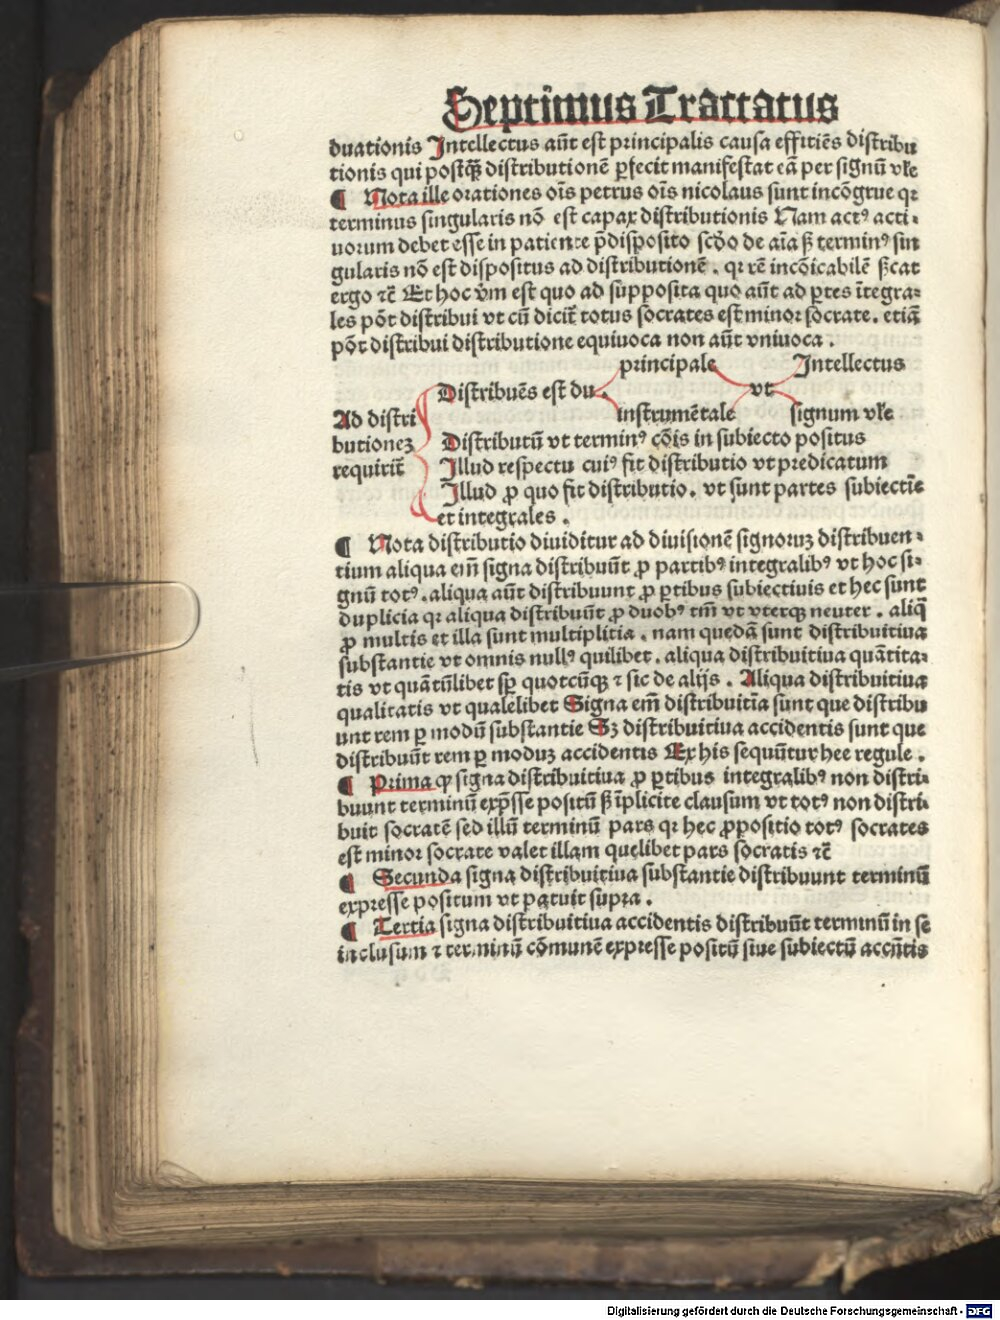 Septimus Tractatus
duationis Intellectus aūt est principalis causa effitiēs distribu
tionis qui postqȝ distributionē ꝑfecit manifestat eā per signū vl̄e
¶ Nota ille orationes oīs petrus oīs nicolaus sunt incōgrue qꝛ
terminus singularis nō est capax distributionis Nam actꝰ acti⸗
uorum debet esse in patiente p̄disposito scd̄o de aīa sꝫ terminꝰ sin
gularis nō est dispositus ad distributionē . qꝛ rē incōicabilē sꝫcat
ergo ⁊c̄ Et hoc vm̄ est quo ad supposita quo aūt ad ꝑtes ītegra⸗
les pōt distribui vt cū dicit̄ totus socrates est minor socrate . etiā
pōt distribui distributione equiuoca non aūt vniuoca .
principale Intellectus
Distribuēs est du . vt
Ad distri instrumētale signum vl̄e
butionez Distributū vt terminꝰ cōis in subiecto positus
requirit̄ Illud respectu cuiꝰ fit distributio vt predicatum
Illud ꝓ quo fit distributio . vt sunt partes subiectīe
et integrales .
¶ Nota distributio diuiditur ad diuisionē signoruꝫ distribuen⸗
tium aliqua em̄ signa distribuūt ꝓ partibꝰ integralibꝰ vt hoc si⸗
gnū totꝰ . aliqua aūt distribuunt ꝓ ꝑtibus subiectiuis et hec sunt
duplicia qꝛ aliqua distribuūt ꝓ duobꝰ tm̄ vt vterqꝫ neuter . aliq̄
ꝓ multis et illa sunt multiplitia . nam quedā sunt distribuitiua
substantie vt omnis nullꝰ quilibet . aliqua distribuitiua quātita⸗
tis vt quātūlibet sꝑ quotcūqꝫ ⁊ sic de alijs . Aliqua distribuitiua
qualitatis vt qualelibet Signa em̄ distribuitīa sunt que distribu
unt rem ꝑ modū substantie Sꝫ distribuitiua accidentis sunt que
distribuūt rem ꝑ moduꝫ accidentis Ex his sequūtur hee regule .
¶ Prima ꝙ signa distribuitiua ꝓ ꝑtibus integralibꝰ non distri⸗
buunt terminū exp̄sse positū sꝫ īplicite clausum vt totꝰ non distri⸗
buit socratē sed illū terminū pars qꝛ hec ꝓpositio totꝰ socrates
est minor socrate valet illam quelibet pars socratis ⁊c̄
¶ Secunda signa distribuitiua substantie distribuunt terminū
expresse positum vt patuit supra .
¶ Tertia signa distribuitiua accidentis distribuūt terminū in se
inclusum ⁊ terminū cōmunē expresse positū siue subiectū accn̄tis
Digitalisierung gefördert durch die Deutsche Forschungsgemeinschaft - DFG